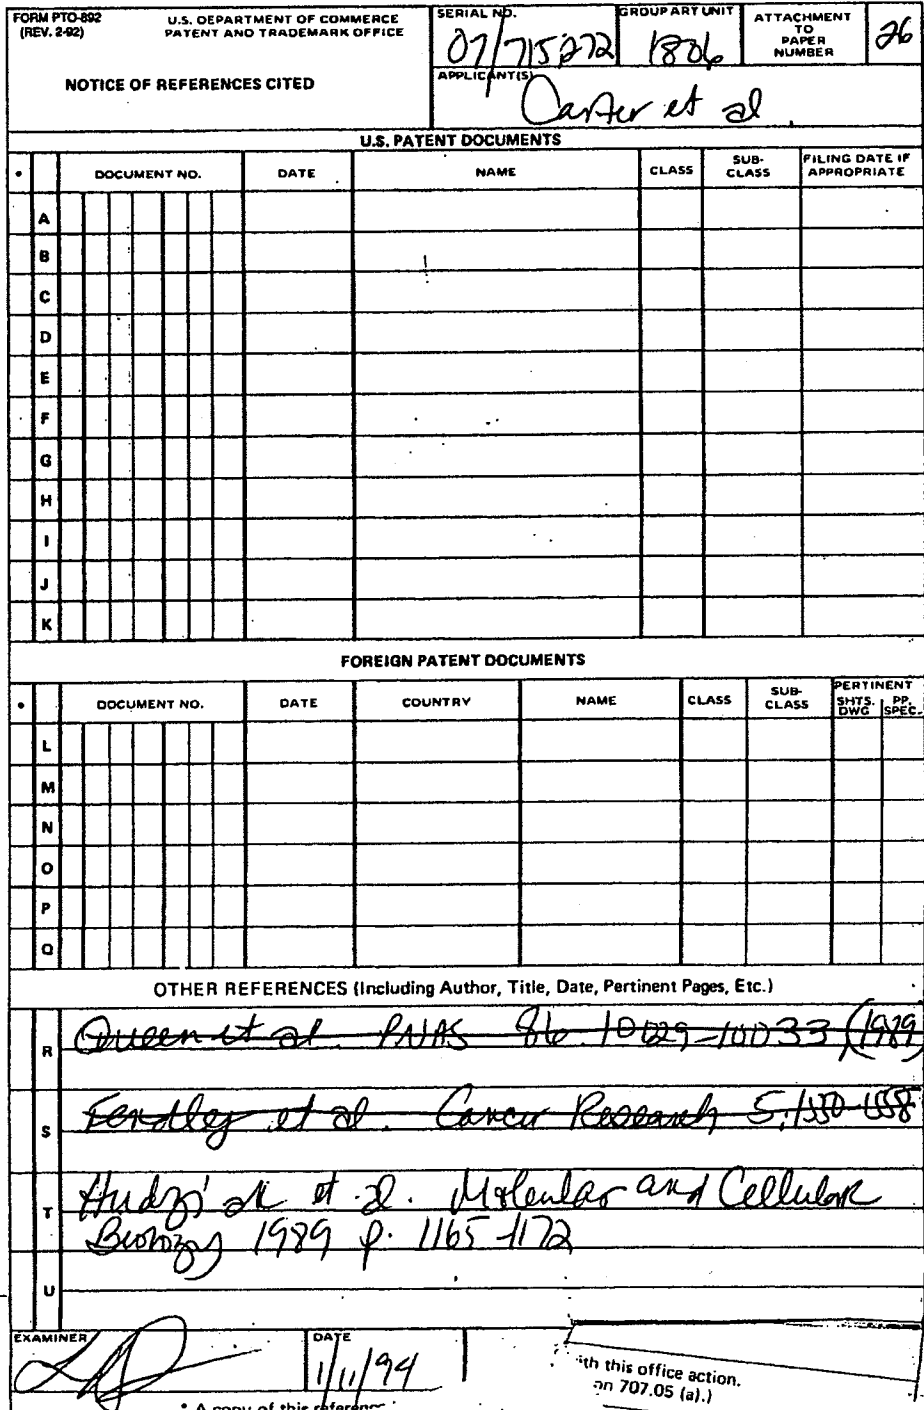 FORM PTO-892
(REV. 2-92)
U.S. DEPARTMENT OF COMMERCE
PATENT AND TRADEMARK OFFICE
NOTICE OF REFERENCES CITED
SERIAL NO.
07/715,272
GROUP ART UNIT
1806
ATTACHMENT
TO
PAPER
NUMBER
26
APPLICANT(S)
Carter et al
U.S. PATENT DOCUMENTS
* DOCUMENT NO. DATE NAME CLASS SUB-CLASS FILING DATE IF APPROPRIATE
A
B
C
D
E
F
G
H
I
J
K
FOREIGN PATENT DOCUMENTS
* DOCUMENT NO. DATE COUNTRY NAME CLASS SUB-CLASS PERTINENT SHTS. DWG PP. SPEC.
L
M
N
O
P
Q
OTHER REFERENCES (Including Author, Title, Date, Pertinent Pages, Etc.)
R Queen et al. PNAS 86. 10029-10033 (1989
S Fendley et al. Cancer Research 5, 1550-1558
T Hudziak et al. Molecular and Cellular
Biology 1989 p. 1165-1172
U
EXAMINER
DATE
1/11/94
ith this office action.
on 707.05 (a).)
* A copy of this reference